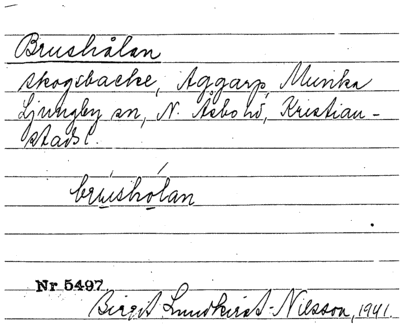 Brushålan
skogsbacke, Aggarp, Munka
Ljungby sn, N. Åsbo hd, Kristian-
stads l.
brúshólan
Nr 5497
Birgit Lundkvist-Nilsson, 1941.